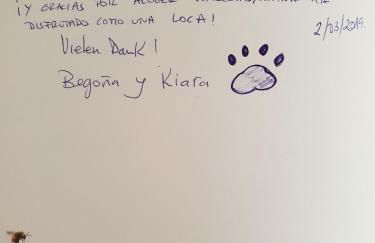 ¡Y GRACIAS POR
DISFRUTADO COMO UNA LOCA!
2/03/2019.
Vielen Dank!
Begoña y Kiara